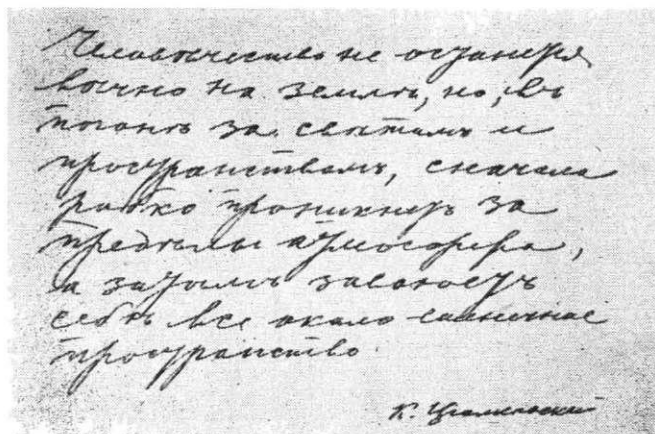 Человѣчество не останется
вѣчно на землѣ, но, въ
погонѣ за свѣтомъ и
пространствомъ, сначала
робко проникнетъ за
предѣлы атмосферы,
а затѣмъ завоюетъ
себѣ все около солнечное
пространство.
К. Циолковский